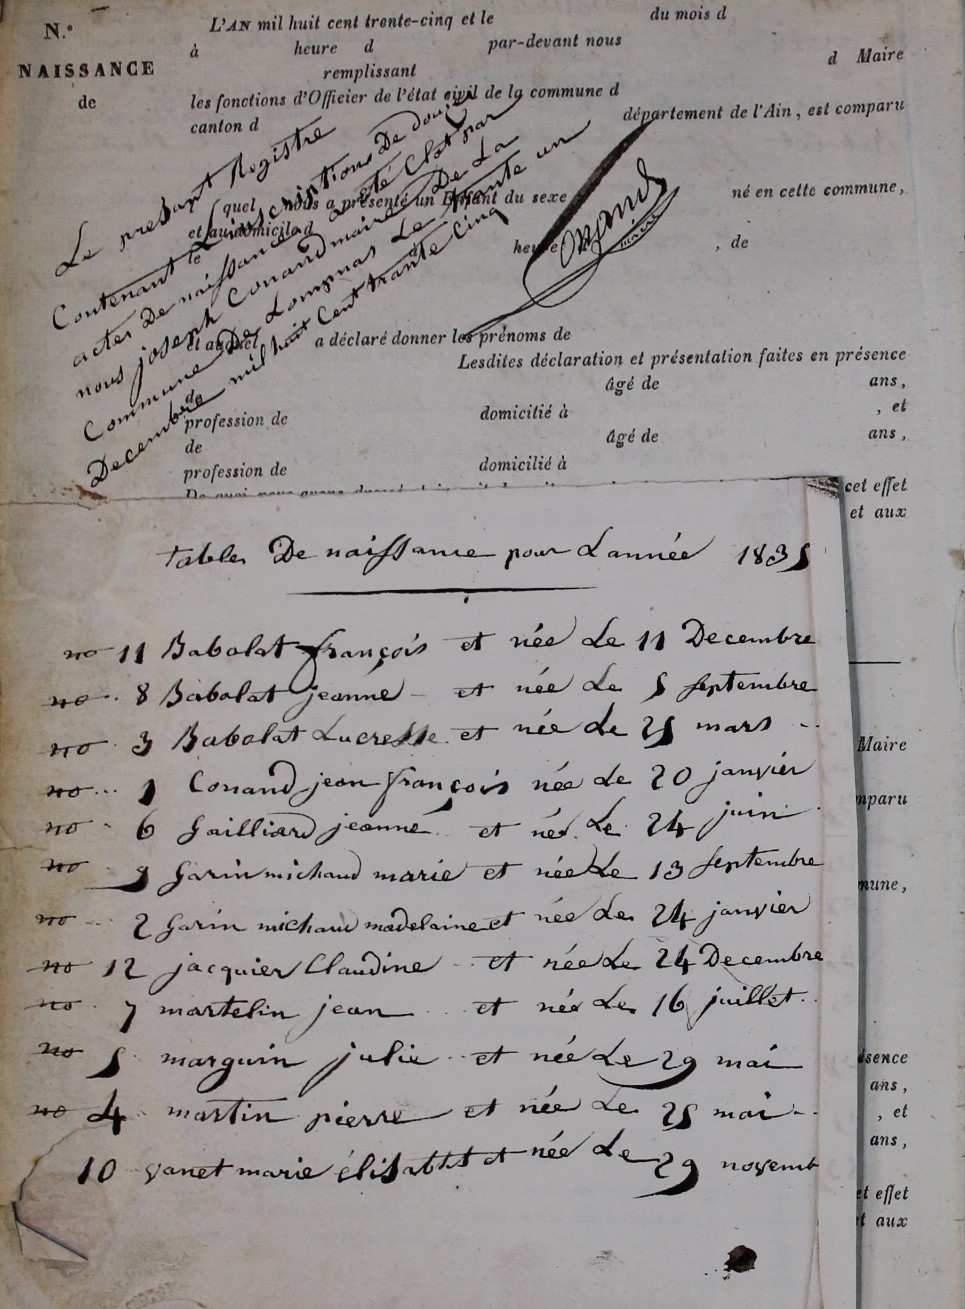 N.º
NAISSANCE
de
L'AN mil huit cent trente-cinq et le du mois d
à heure d par-devant nous
d Maire
remplissant
les fonctions d'Officier de l'état civil de la commune d
canton d département de l'Ain, est comparu
quel nous a présenté un Enfant du sexe né en cette commune,
et au domicile d
heure , de
et auquel a déclaré donner les prénoms de
Lesdites déclaration et présentation faites en présence
de âgé de ans,
profession de domicilié à , et
de âgé de ans,
profession de domicilié à
cet effet
et aux
Le present Registre
Contenant Les inscriptions De douze
actes De naissances a été Clot par
nous joseph Conand maire De La
Commune De Lompnas Le trante un
Decembre mil huit Cent trante Cinq
Conand
maire
tables De naissance pour Lannée 1835
no 11 Babolat françois et née Le 11 Decembre
no 8 Babolat jeanne et née Le 5 septembre
no 3 Babolat Lucresse et née Le 25 mars
no 1 Conand jean françois née Le 20 janvier
no 6 Gailliard jeanne et née Le 24 juin
no 9 Garin michaud marie et née Le 13 septembre
no 2 Garin michaud madelaine et née Le 24 janvier
no 12 jacquier Claudine et née Le 24 Decembre
no 7 martelin jean et née Le 16 juillet
no 5 marguin julie et née Le 29 mai
no 4 martin pierre et née Le 25 mai
10 vanet marie élisabtt et née Le 29 novemb
Maire
mparu
mune,
ésence
ans,
, et
ans,
et effet
et aux